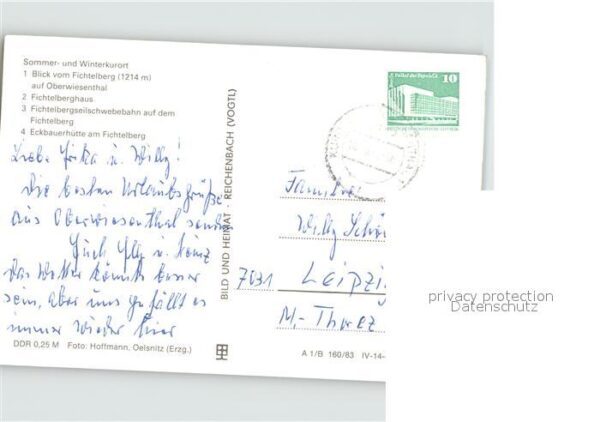 Sommer- und Winterkurort
1 Blick vom Fichtelberg (1214 m)
auf Oberwiesenthal
2 Fichtelberghaus
3 Fichtelbergseilschwebebahn auf dem
Fichtelberg
4 Eckbauerhütte am Fichtelberg
Liebe Erika u. Willy!
Die besten Urlaubsgrüße
aus Oberwiesenthal senden
Euch u. Franz
Das Wetter könnte besser
sein, aber uns gefällt es
immer wieder hier
DDR 0,25 M Foto: Hoffmann, Oelsnitz (Erzg.)
BILD UND HEIMAT REICHENBACH (VOGTL)
10
Familie
Willy
7031 Leipzig
M.-
A 1/B 160/83 IV-14-
privacy protection
Datenschutz